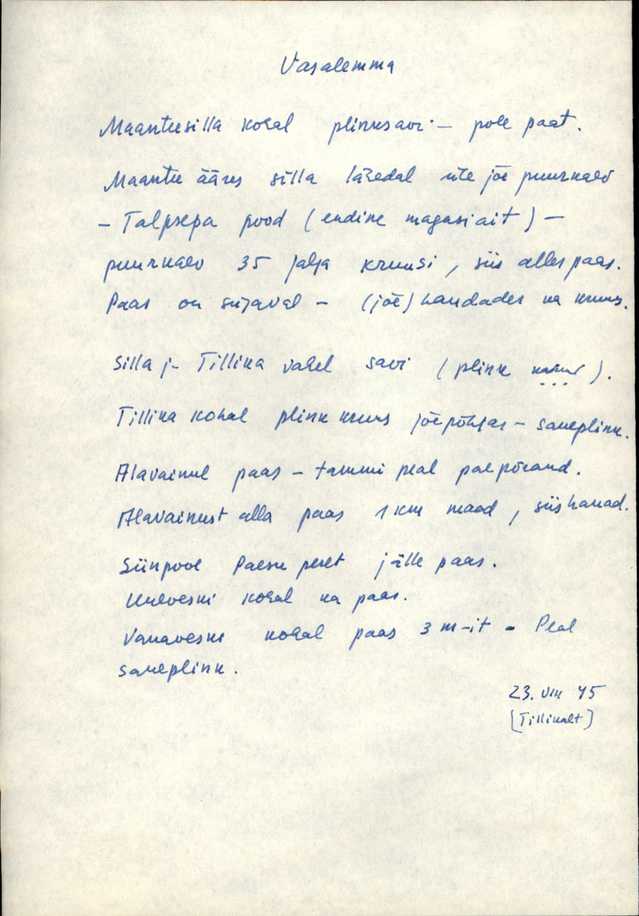 Vasalemma
Maanteesilla kohal plinksavi – pole paat.
Maantee ääres silla lähedal üle jõe puurkaev
– Talpsepa pood (endine magasiait) –
puurkaev 35 jalga kruusi, siis alles paas.
Paas on sügaval – (jõe) haudades ka kruus.
Silla j– Tillika vahel savi (plink
Tillika kohal plink kruus jõepõhjas – saueplink.
Alavainul paas – tammi peal paepõrand.
Alavainust alla paas 1 km maad, siis hauad.
Siinpool Paesu peret jälle paas.
Uueveski kohal ka paas.
Vanaveski kohal paas 3 m-it – Peal
saueplink.
23. VIII 45
[Tillikalt]